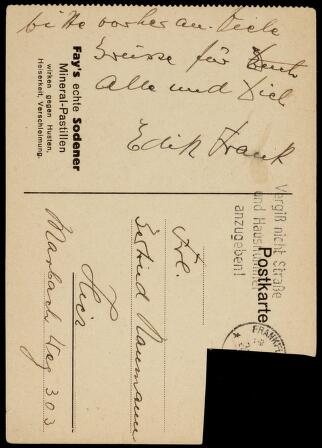 bitte vorher an. Viele
Grüsse für Euch
Alle und Dich
Edith Frank
Fay's echte Sodener
Mineral-Pastillen
wirken gegen Husten,
Heiserkeit, Verschleimung.
Vergiß nicht Straße
und Hausnummer
anzugeben!
Postkarte
FRANKF
Frl.
Gertrud Naumann
Hier
Marbach Weg 303